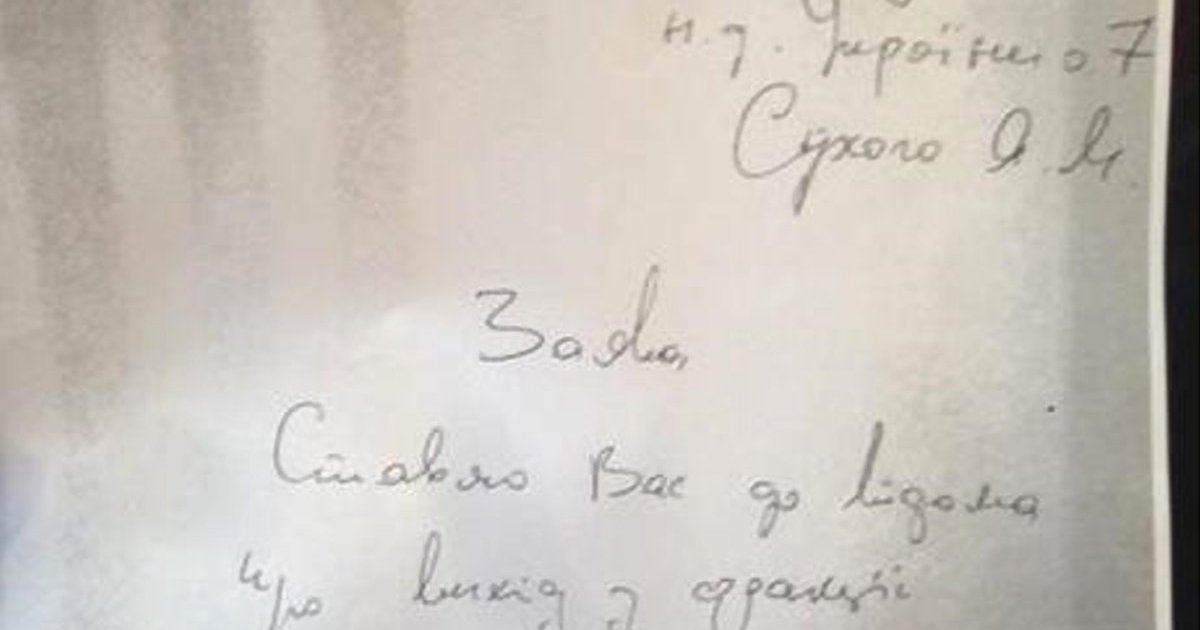 н.д. України
Сухого Я.М.
Заява
Ставлю Вас до відома
про вихід з фракції